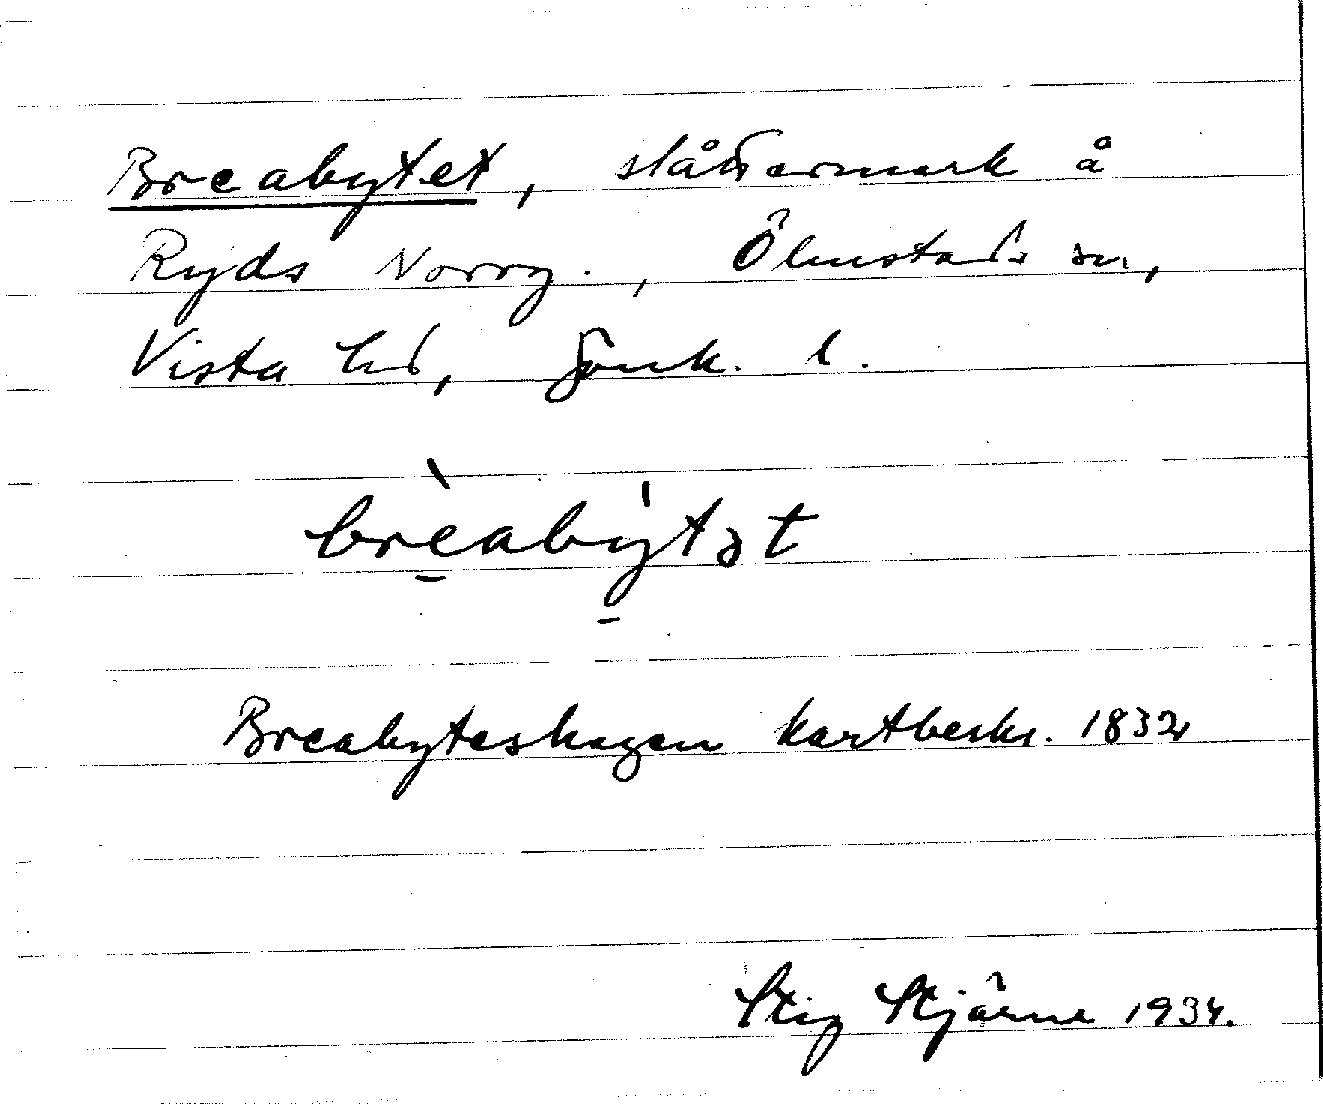 Breabytet, slåttermark å
Ryds Norrg., Ölmstads sn,
Vista hd, Jönk. l.
brèabýtət
Breabyteshagen kartbeskr. 1832
Stig Stjärne 1934.